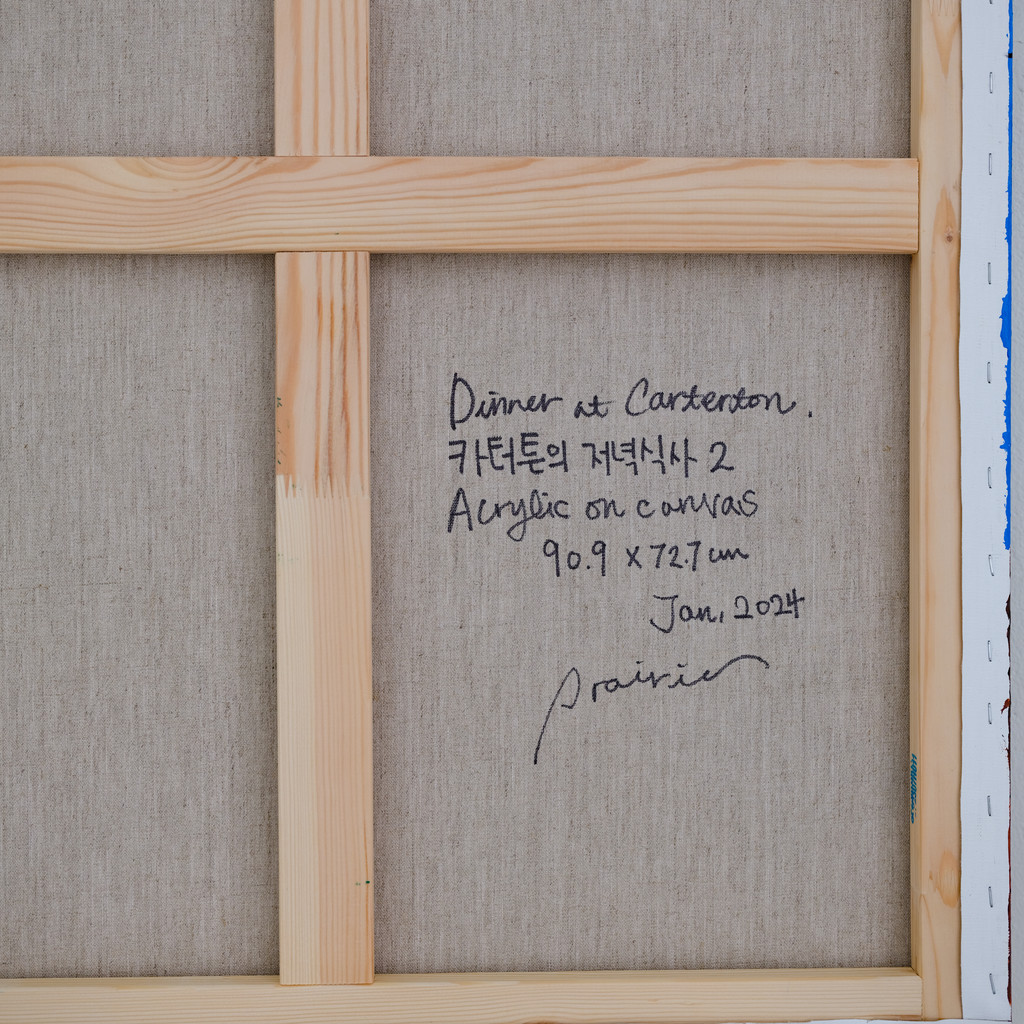 Dinner at Carterton.
카터톤의 저녁식사 2
Acrylic on canvas
90.9 x 72.7 cm
Jan, 2024
prairie